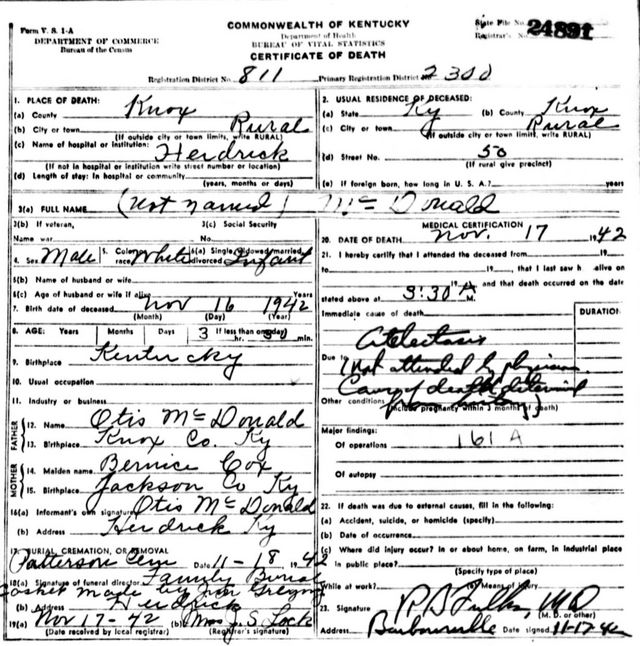 Form V. S. 1-A
DEPARTMENT OF COMMERCE
Bureau of the Census
COMMONWEALTH OF KENTUCKY
Department of Health
BUREAU OF VITAL STATISTICS
CERTIFICATE OF DEATH
State File No. 24891
Registrar's No.
Registration District No. 811 Primary Registration District No. 2300
1. PLACE OF DEATH:
(a) County Knox
(b) City or town Rural
(If outside city or town limits, write RURAL)
(c) Name of hospital or institution: Herdrick
(If not in hospital or institution write street number or location)
(d) Length of stay: In hospital or community
(years, months or days)
2. USUAL RESIDENCE OF DECEASED:
(a) State Ky (b) County Knox
(c) City or town Rural
(If outside city or town limits, write RURAL)
(d) Street No. 50
(If rural give precinct)
(e) If foreign born, how long in U. S. A.? years
3(a) FULL NAME (Not named) McDonald
3(b) If veteran,
Name war
3(c) Social Security
No.
4. Sex Male 5. Color or race White 6(a) Single, widowed, married, divorced Infant
6(b) Name of husband or wife
6(c) Age of husband or wife if alive Years
7. Birth date of deceased Nov 16 1942
(Month) (Day) (Year)
8. AGE: Years Months Days If less than one day
3 hr. 30 min.
9. Birthplace Kentucky
10. Usual occupation
11. Industry or business
FATHER
12. Name Otis McDonald
13. Birthplace Knox Co. Ky
MOTHER
14. Maiden name Bernice Cox
15. Birthplace Jackson Co Ky
16(a) Informant's own signature Otis McDonald
(b) Address Herdrick Ky
17. BURIAL, CREMATION, OR REMOVAL
Patterson Cem Date 11-18 1942
18(a) Signature of funeral director Family Burial
Casket made by Jim Gregory
(b) Address Herdrick
19(a) Nov 17-42 (b) Mrs J. S. Lock
(Date received by local registrar) (Registrar's signature)
MEDICAL CERTIFICATION
20. DATE OF DEATH Nov. 17 1942
21. I hereby certify that I attended the deceased from 19
to 19, that I last saw h alive on
19, and that death occurred on the date
stated above at 3:30 A M.
Immediate cause of death DURATION
Atelectasis
Due to (Not attended by physician
Cause of death determined
Other conditions from history)
(Include pregnancy within 3 months of death)
Major findings:
Of operations 161A
Of autopsy
22. If death was due to external causes, fill in the following:
(a) Accident, suicide, or homicide (specify)
(b) Date of occurrence
(c) Where did injury occur? In or about home, on farm, in industrial place
In public place?
(Specify type of place)
While at work? (e) Means of Injury
23. Signature M D
(M. D. or other)
Address Barbourville Date signed 11-17-42